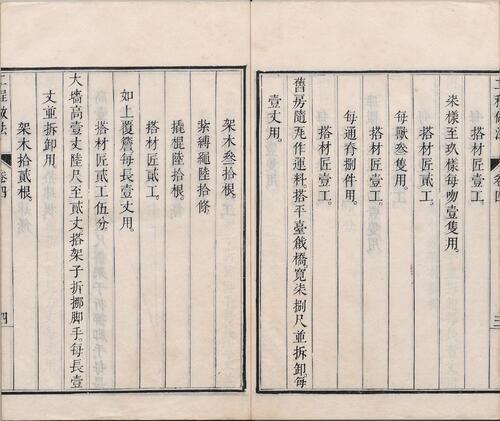 每
搭材匠壹工。
柒樣至玖樣每吻壹隻用。
搭材匠貳工。
每獸叄隻用。
搭材匠壹工。
每通脊捌件用。
搭材匠壹工。
舊房隨瓦作運料搭平臺戧橋寬柒捌尺並拆卸。每
壹丈用。
三
架木叄拾根。
紮縛繩陸拾條。
撬棍陸拾根。
搭材匠貳工。
如上覆簷每長壹丈用。
搭材匠貳工伍分。
大墻高壹丈陸尺至貳丈搭架子折挪脚手。每長壹
丈並拆卸用。
架木拾貳根。
工程做法
卷四
四